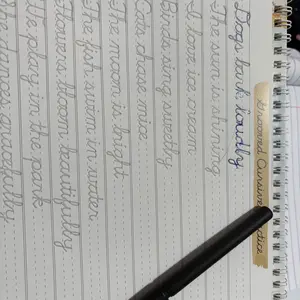 Improved Cursive Practice
Dogs bark loudly
The sun is shining
I love ice cream
Birds sing sweetly
Cats chase mice
The moon is bright.
The fish swim in water
Flowers bloom beautifully
We play in the park.
dances gracefully